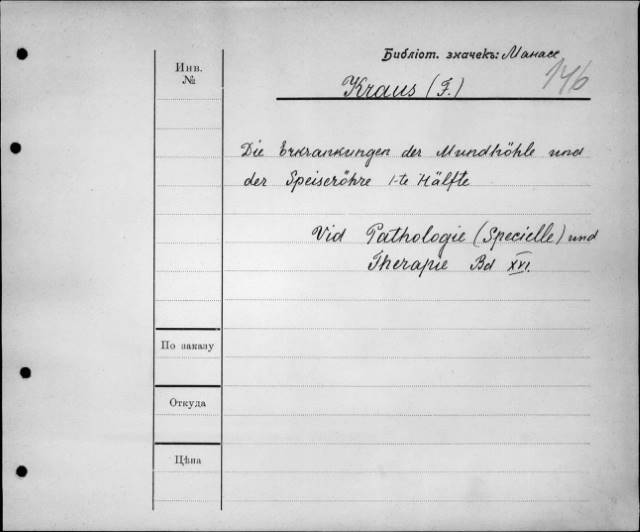 Библіот. значекъ: Манасс
146
Инв.
№
Kraus (F.)
Die Erkrankungen der Mundhöhle und
der Speiseröhre 1-te Hälfte
Vid Pathologie (Specielle) und
Therapie Bd XVI.
По заказу
Откуда
Цѣна